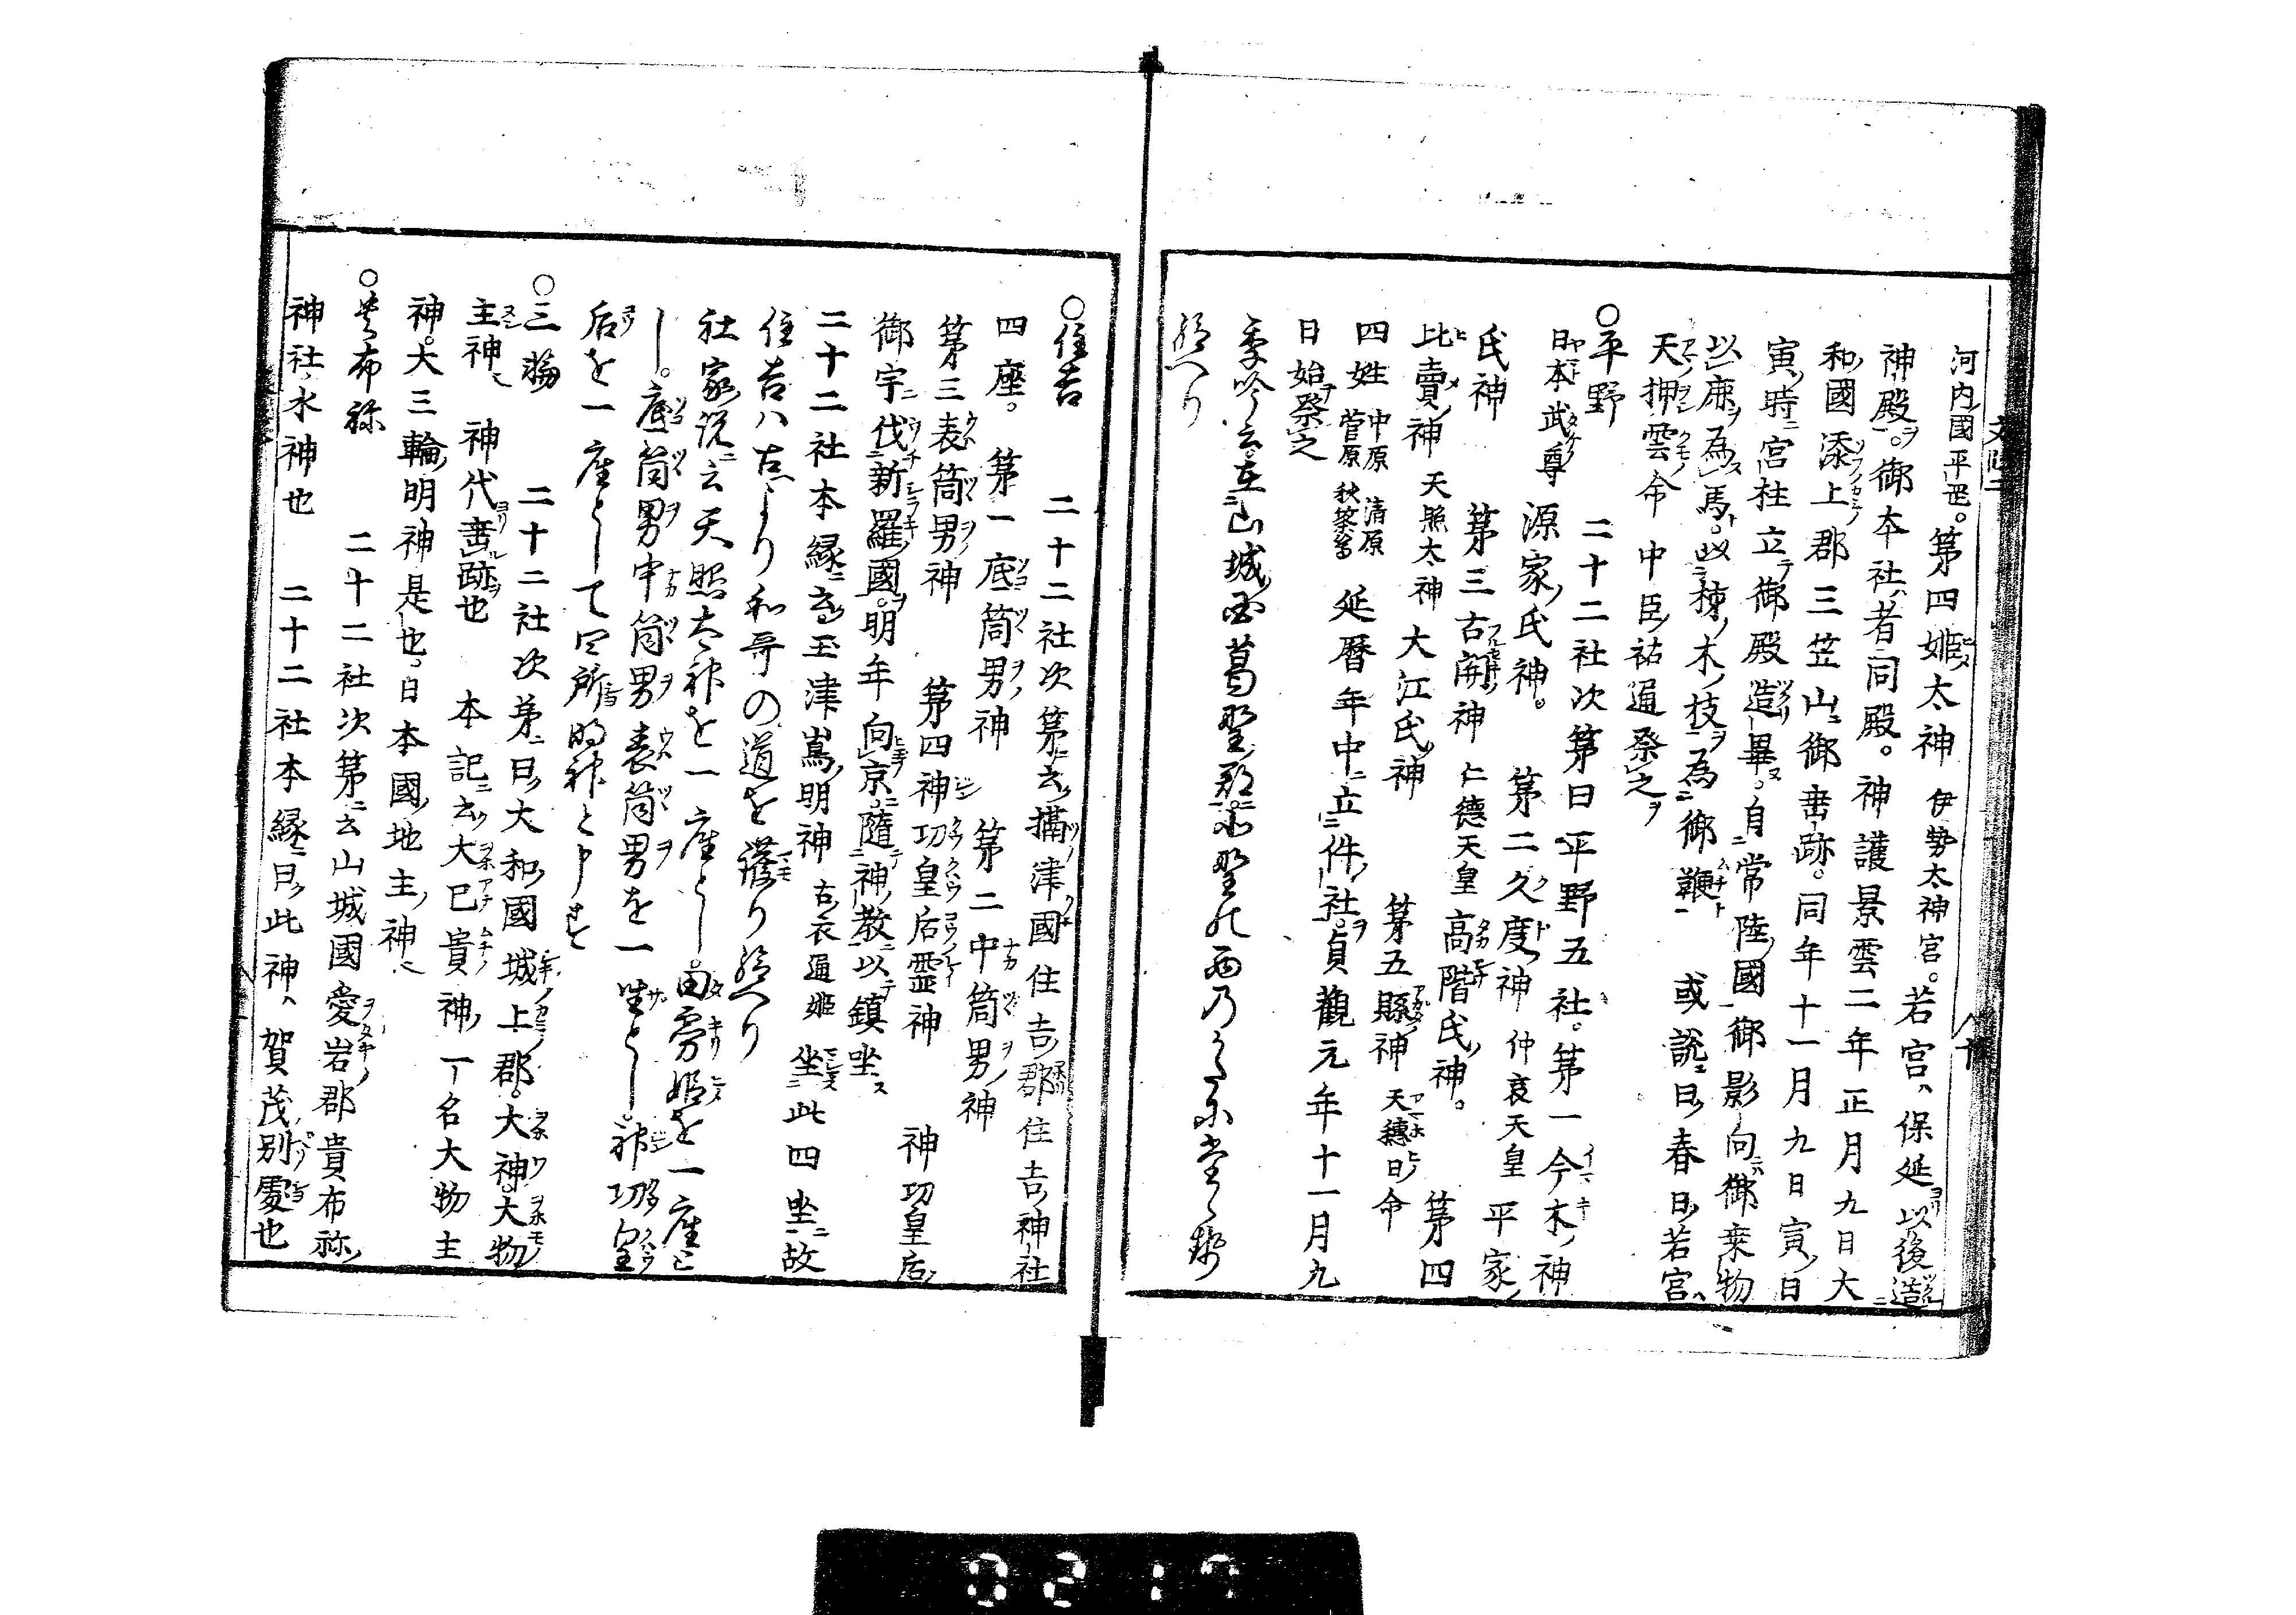 河内国平岡。第四姫太神 伊勢太神宮。若宮、保延以後造
神殿。御本社者同殿。神護景雲二年正月九日大
和國添上郡三笠山御垂跡。同年十一月九日寅日
寅時宮柱立御殿造畢。自常陸國御影向御乗物
以鹿為馬。以柿木枝為御鞭 或説曰春日若宮
天押雲命 中臣祐通祭之
○平野 二十二社次第曰平野五社。第一今木神
日本武尊 源家氏神。 第二久度神 仲哀天皇 平家
氏神 第三古開神 仁徳天皇 高階氏神。 第四
比賣神 天照太神 大江氏神 第五縣神 天穂日命
四姓 中原 清原 菅原 秋篠 延暦年中立件社。貞観元年十一月九
日始祭之
季吟云在山城國葛野郡
給へり
○住吉 二十二社次第云攝津國住吉郡住吉神社
四座。 第一底筒男神 第二中筒男神
第三表筒男神 第四神功皇后霊神 神功皇后
御宇伐新羅國明年向京隨神教以鎮坐
二十二社本縁云玉津嶌明神 古衣通姫 坐此四坐故
住吉ハ古より和哥の道を護り給へり
社家説云天照太神を一座とし田霧姫を一座と
し。底筒男中筒男表筒男を一坐とし。神功皇
后を一座として四所明神と申す
○三輪 二十二社次第曰大和國城上郡。大神大物
主神 神代垂跡也 本記云大已貴神一名大物主
神。大三輪明神是也。日本國地主神
○貴布祢 二十二社次第云山城國愛岩郡貴布祢
神社水神也 二十二社本縁曰此神、賀茂別處也
0217